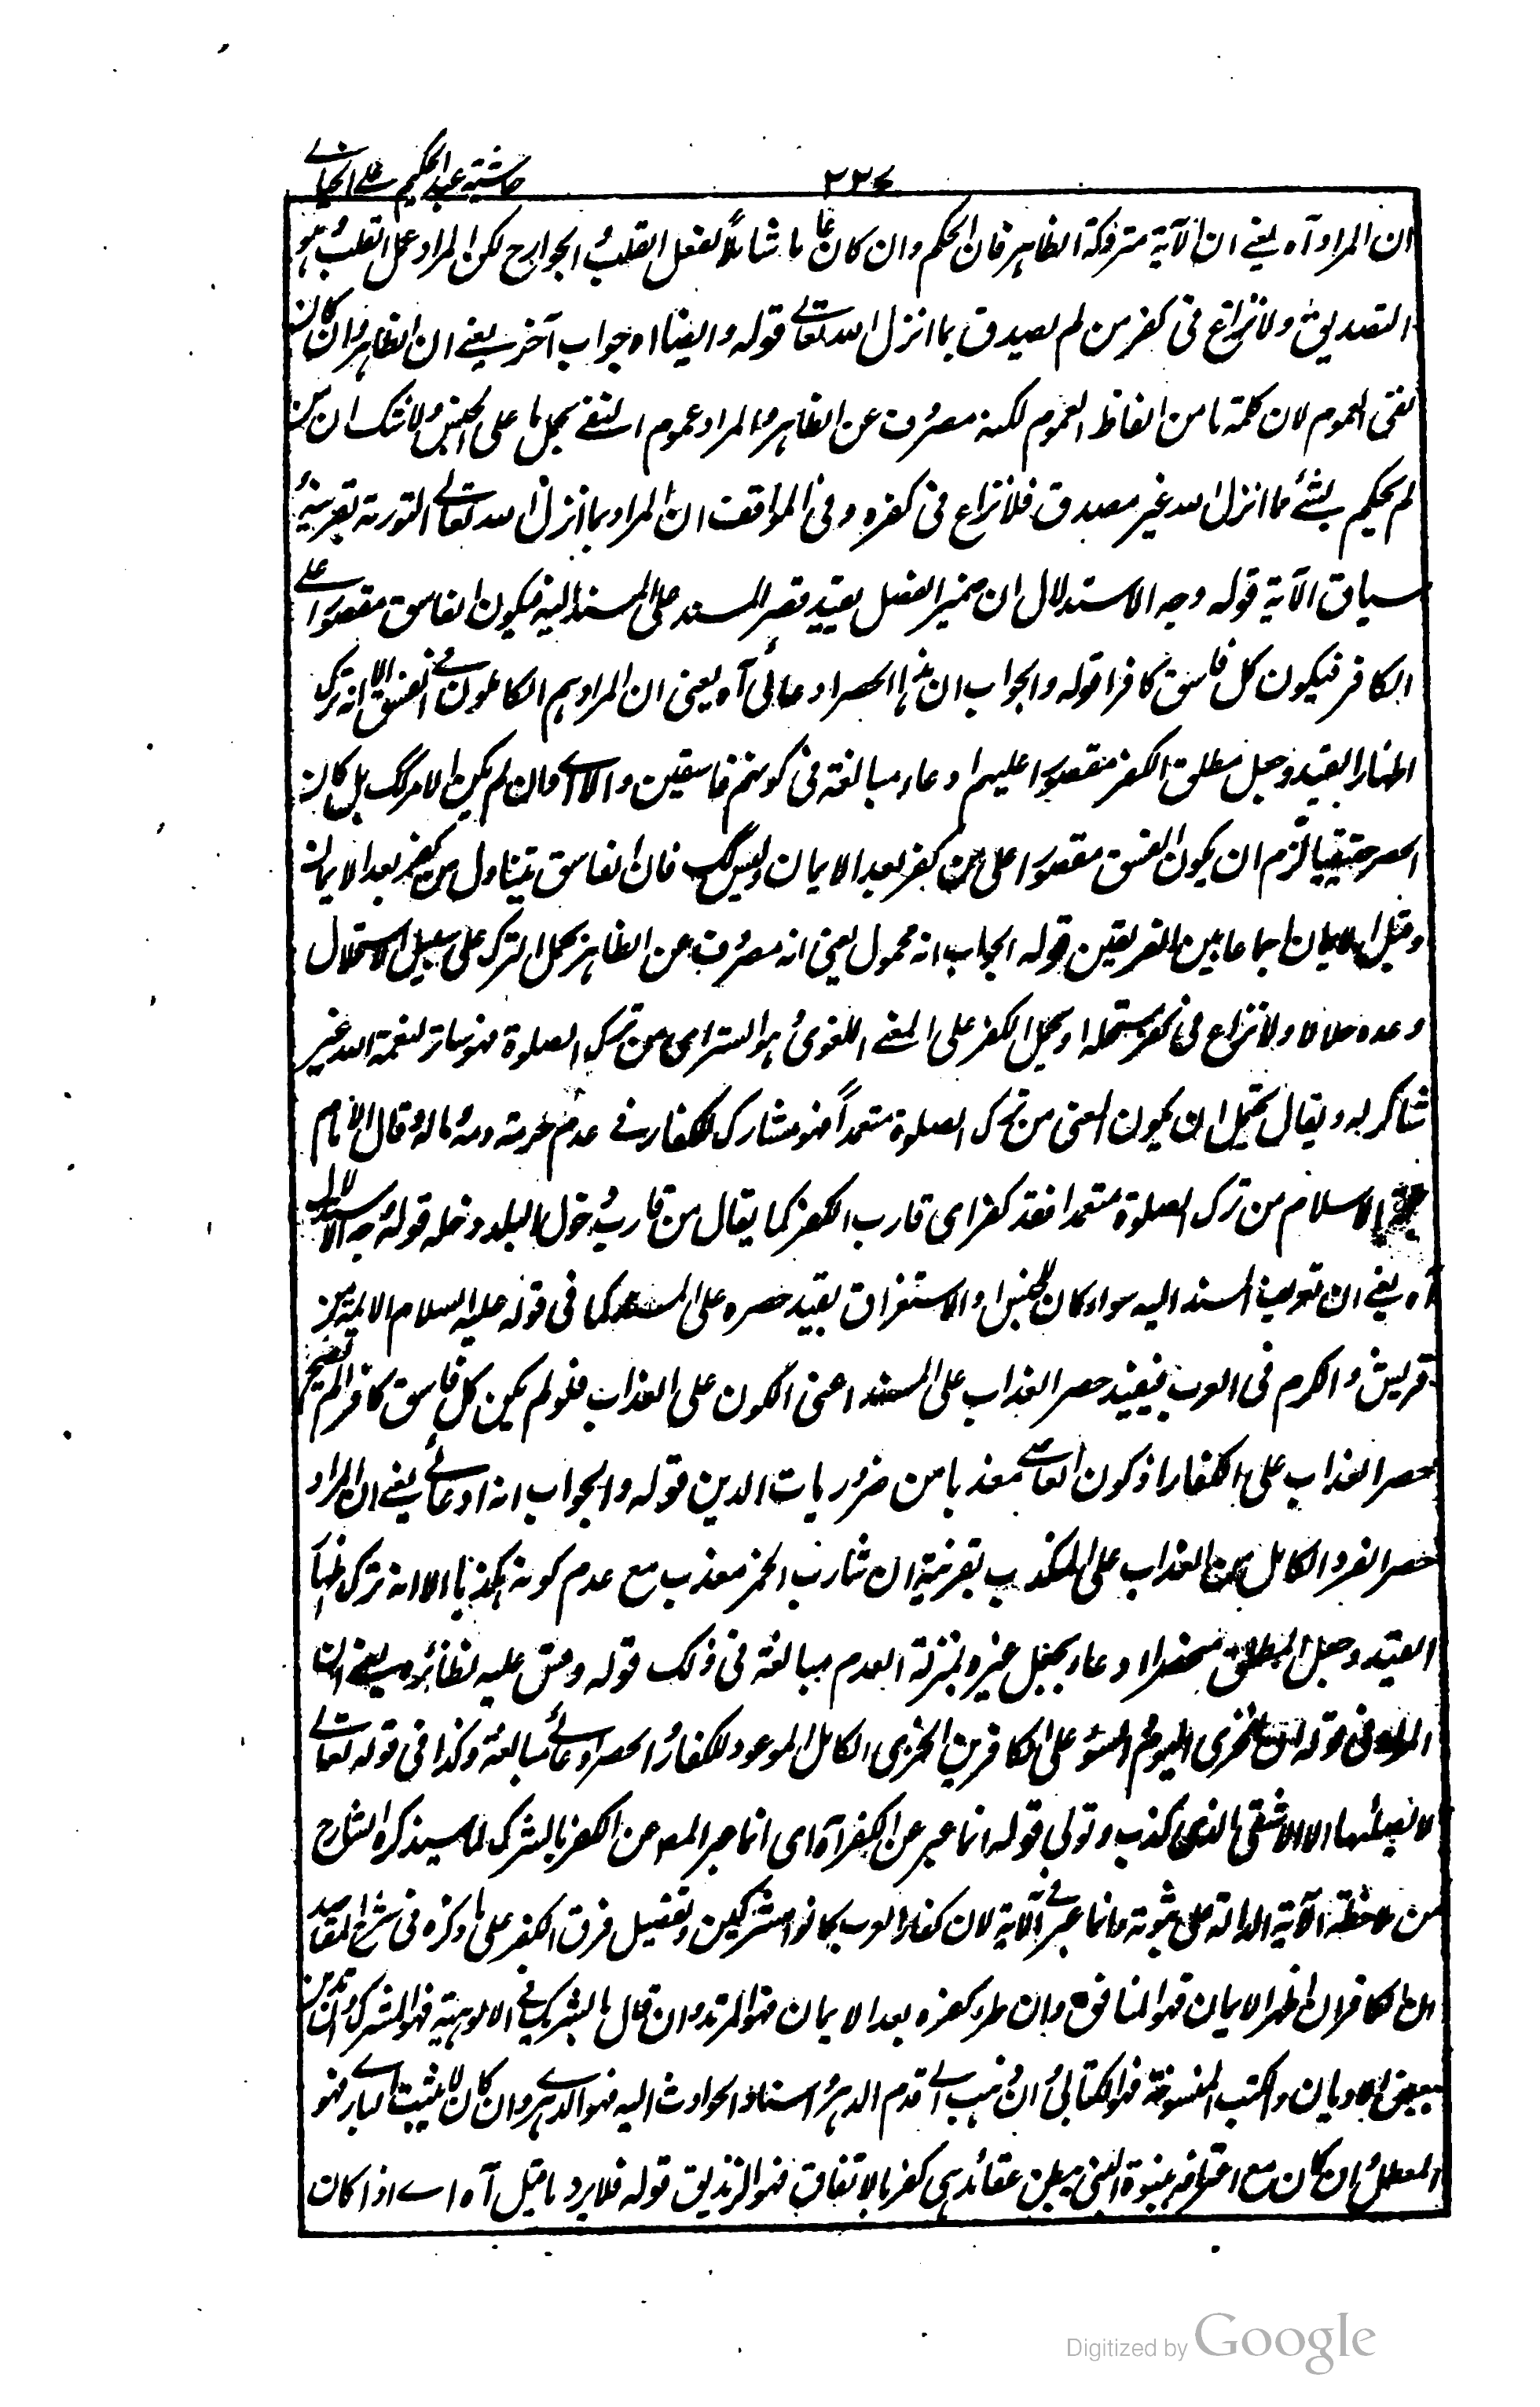 حاشیة عبد الحکیم علے الخیالے
۲۳۶
ان المراد آه یعنے ان الآیة متروکة الظاهر فان الحکم وان کان عاما شاملاً لفعل القلب والجوارح لکن المراد عمل القلب وهو
التصدیق ولا نزاع فی کفر من لم یصدق بما انزل الله تعالے قوله وایضا اه جواب آخر یعنے ان الظاهر وان کان
نفی العموم لان کلمة ما من الفاظ العموم لکنه مصروف عن الظاهر والمراد عموم النفے بحمل ما علی الجنس ولا شک ان من
لم یحکم بشئ مما انزل الله غیر مصدق فلا نزاع فی کفره وفی المواقف ان المراد بما انزل الله تعالے التوریة بقرینة
سیاق الآیة قوله وجه الاستدلال ان ضمیر الفصل یفید قصر المسند علی المسند الیه فیکون الفاسق مقصورا علے
الکافر فیکون کل فاسق کافرا قوله والجواب ان هذا الحصر ادعائی آه یعنی ان المراد هم الکاملون فے الفسق الا انه ترک
اظهار القید وجعل مطلق الکفر مقصورا علیهم ادعاء مبالغة فی کونهم فاسقین والا اے وان لم یکن الامر کک بل کان
الحصر حقیقیا لزم ان یکون الفسق مقصورا علی من کفر بعد الایمان ولیس کک فان الفاسق یتناول من کفر بعد الایمان
وقبل الایمان اجماعا بین الفریقین قوله الجواب انه محمول یعنی انه مصروف عن الظاهر بحمل الترک علی سبیل الاستحلال
وعده حلالا ولا نزاع فی کفر مستحله او بحمل الکفر علی المعنے اللغوی وهو الستر ای من ترک الصلوة فهو ساتر لنعمة الله غیر
شاکر له ویقال یحتمل ان یکون المعنی من ترک الصلوة متعمداً فهو مشارک للکفار فے عدم حرمة دمه وماله وقال الامام
حجة الاسلام من ترک الصلوة متعمدا فقد کفر ای قارب الکفر کما یقال من قارب دخول البلد دخله قوله وجه الاستدلال
آه یعنے ان تعریف المسند الیه سواء کان للجنس او الاستغراق یفید حصره علی المسند کما فی قوله علیه السلام الائمة من
قریش والکرم فی العرب فیفید حصر العذاب علی المسند اعنی الکون علی العذاب فلو لم یکن کل فاسق کافرا لم یصح
حصر العذاب علی الکفار اذ کون العاصے معذبا من ضروریات الدین قوله والجواب انه ادعائے یعنے ان المراد
حصر الفرد الکامل من العذاب علی المکذب بقرینة ان شارب الخمر معذب مع عدم کونه مکذبا الا انه ترک اظهار
القید وجعل المطلق منحصرا ادعاء بجعل غیره بمنزلة العدم مبالغة فی ذلک قوله وقس علیه نظائره یعنے ان
المراد فی قوله ان الخزی الیوم والسوء علی الکافرین الخزی الکامل الموعود للکفار والحصر ادعائے مبالغة وکذا فی قوله تعالے
لا یصلٰیها الا الاشقی الذی کذب وتولی قوله انما عبر عن الکفر آه ای انما عبر المص عن الکفر بالشرک لما سیذکره الشارح
من ملاحظة الآیة الدالة علی ثبوته وانما عبر فے الآیة لان کفار العرب کانوا مشرکین وتفصیل فرق الکفر علی ما ذکره فی شرح المقاصد
ان الکافر ان اظهر الایمان فهو المنافق وان طرء کفره بعد الایمان فهو المرتد وان قال بالشریک فے الالوهیة فهو المشرک وان تدین
ببعض الادیان والکتب المنسوخة فهو الکتابی وان ذهب اے قدم الدهر واسناد الحوادث الیه فهو الدهرے وان کان لا یثبت البارے فهو
المعطل وان کان مع اعترافه بنبوة النبی یبطن عقائد هی کفر بالاتفاق فهو الزندیق قوله فلا یرد ما قیل آه اے اذا کان
Digitized by Google